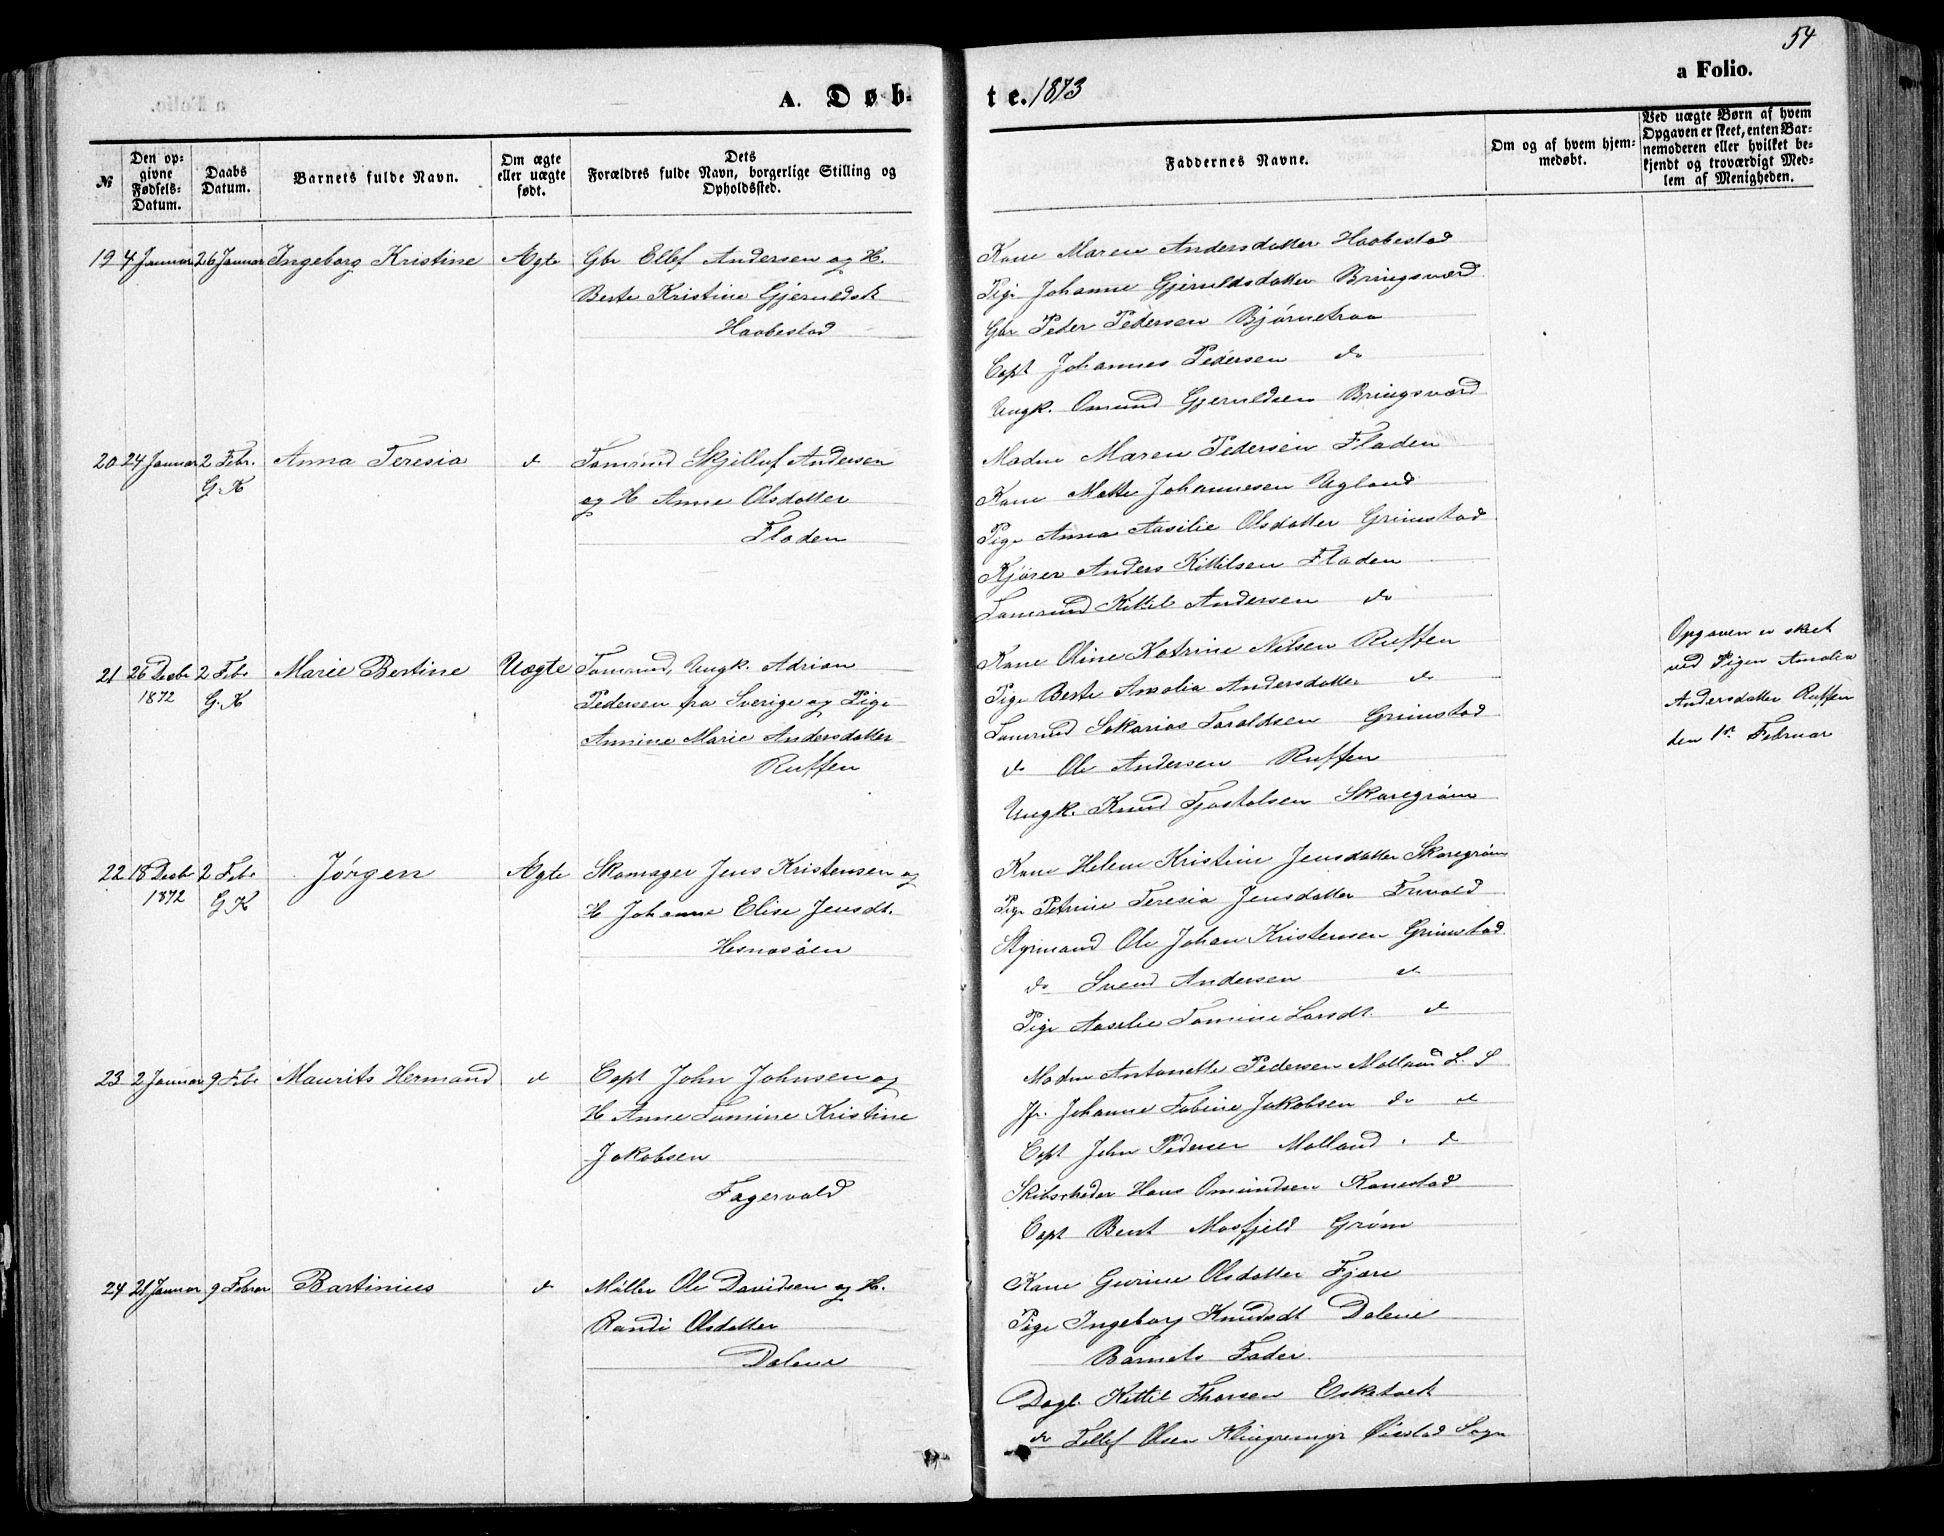 54
a Folio.
A. Døb-
te. 1873
№
Den op-
givne
Fødsels-
Datum.
Daabs
Datum.
Barnets fulde Navn.
Om ægte
eller uægte
født.
Dets
Forældres fulde Navn, borgerlige Stilling og
Opholdssted.
Faddernes Navne.
Om og af hvem hjem-
medøbt.
Ved uægte Børn af hvem
Opgaven er skeet, enten Bar-
nemoderen eller hvilket be-
kjendt og troværdigt Med-
lem af Menigheden.
19 4 Januar 26 Januar Ingeborg Kristine Ægte Gbr Ellef Andersen og H.
Berte Kristine Gjeruldsdt
Haabestad
Kone Maren Andersdatter Haabestad
Pige Johanne Gjeruldsdatter Bringsværd
Gbr Peder Pedersen Bjørnetraa
Capt Johannes Pedersen do
Ungk. Omund Gjeruldsen Bringsværd
20 24 Januar 2 Febr. Anna Teresia d Tømrmd Skjelluf Andersen
G. K og H Anne Olsdatter
Fladen
Madm Maren Pedersen Fladen
Kone Mette Johannesen Ugland
Pige Anna Aasilie Olsdatter Grimstad
Kjører Anders Kittilsen Fladen
Tømrmd Kittil Andersen do
21 26 Decbr 2 Febr Marie Bertine Uægte Tømrmd, Ungk. Adrian
1872 G. K Pedersen fra Sverige og Pige
Annine Marie Andersdatter
Ruffen
Kone Oline Katrine Nilsen Ruffen
Pige Berte Amalia Andersdatter do
Tømrmd Sakarias Taraldsen Grimstad
d Ole Andersen Ruffen
Ungk. Knud Tjøstolsen Skaregrøm
Opgaven er skeet
ved Pigen Amalia
Andersdatter Ruffen
den 1st Februar
22 18 Decbr 2 Febr Jørgen Ægte Skomager Jens Kristensen og
1872 G K H Johanne Elise Jensdt.
Hesnæsøen
Kone Helene Kristine Jensdatter Skaregrøm
Pige Petrine Teresia Jensdatter Frivold
Styrmand Ole Johan Kristensen Grimstad
do Svend Andersen d
Pige Aaselie Tomine Larsdt. d
23 2 Januar 9 Febr Maurits Hermand d Capt John Johnsen og
H Anne Tomine Kristine
Jakobsen
Fagervold
Madm Antonette Pedersen Molland L. S
Jfr. Johanne Tobine Jakobsen do d
Capt John Pedersen Molland d
Skibsrheder Hans Omundsen Rønestad
Capt Bent Mosfjeld Grøm
24 21 Januar 9 Febrar Bartinius d Møller Ole Davidsen og H.
Randi Olsdatter
Dalene
Kone Gurine Olsdatter Fjære
Pige Ingeborg Knudsdt Dalene
Barnets Fader
Dagl. Kittil Thorsen Esketvedt
do Tellef Olsen Klingremyr Øiestad Sogn